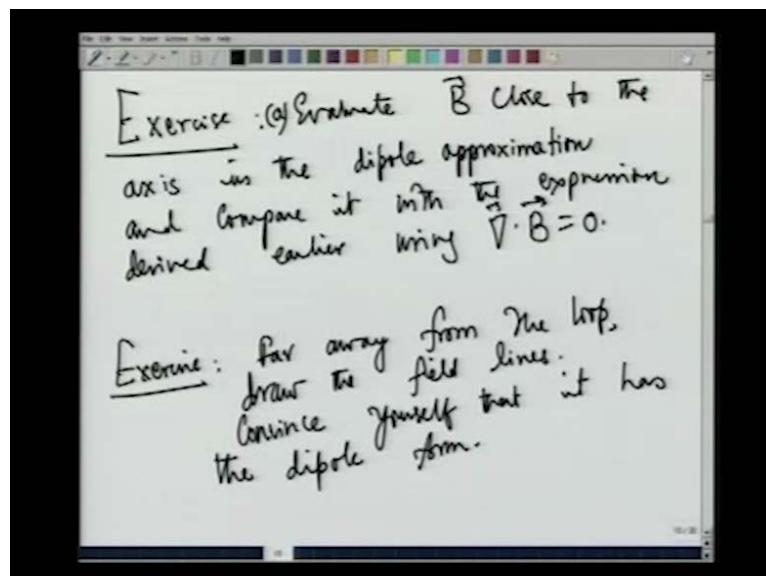 Exercise :(a) Evaluate B⃗ close to the
axis in the dipole approximation
and compare it with the expression
derived earlier using ∇⃗·B⃗=0.
Exercise: Far away from the loop,
draw the field lines.
Convince yourself that it has
the dipole form.